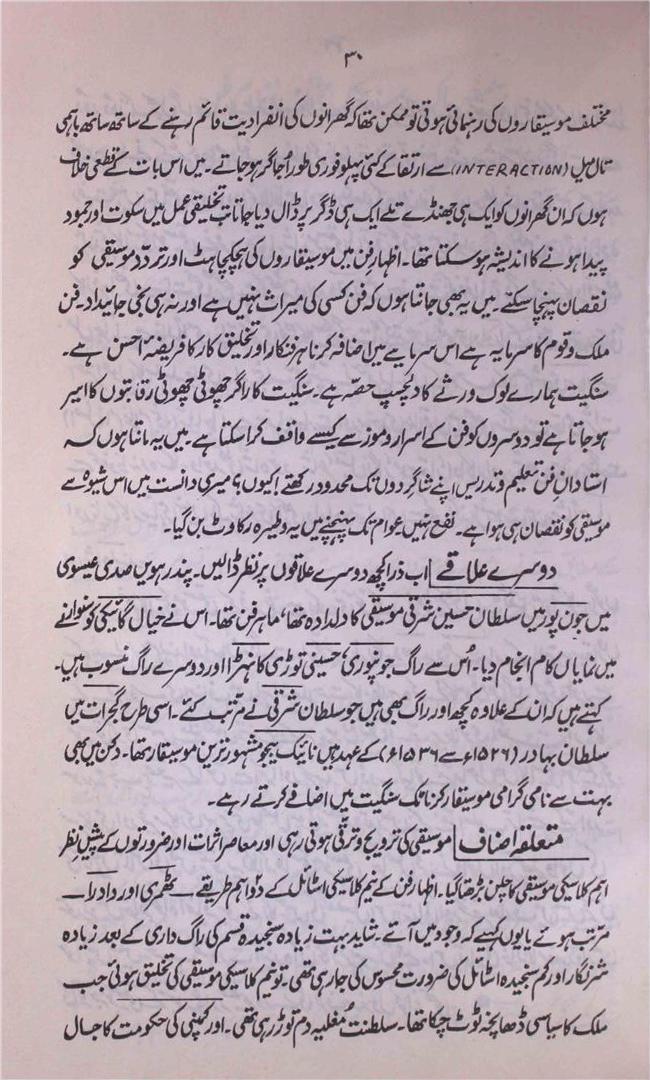 ۳۰
مختلف موسیقاروں کی رہنمائی ہوتی تو ممکن تھا کہ گھرانوں کی انفرادیت قائم رہنے کے ساتھ ساتھ باہمی
تال میل (INTERACTION) سے ارتقا کے کئی پہلو فوری طور اُجاگر ہو جاتے۔ میں اس بات کے قطعی خلاف
ہوں کہ ان گھرانوں کو ایک ہی جھنڈے تلے ایک ہی ڈگر پر ڈال دیا جاتا تب تخلیقی عمل میں سکوت اور جمود
پیدا ہونے کا اندیشہ ہو سکتا تھا۔ اظہارِ فن میں موسیقاروں کی ہچکچاہٹ اور تردّد موسیقی کو
نقصان پہنچا سکتے۔ میں یہ بھی جانتا ہوں کہ فن کسی کی میراث نہیں ہے اور نہ ہی نجی جائیداد۔ فن
ملک و قوم کا سرمایہ ہے اس سرمایے میں اضافہ کرنا ہر فنکار اور تخلیق کار کا فریضۂ احسن ہے۔
سنگیت ہمارے لوک ورثے کا دلچسپ حصّہ ہے۔ سنگیت کار اگر چھوٹی چھوٹی رقابتوں کا اسیر
ہو جاتا ہے تو دوسروں کو فن کے اسرار و رموز سے کیسے واقف کرا سکتا ہے۔ میں یہ مانتا ہوں کہ
استادانِ فن تعلیم و تدریس اپنے شاگردوں تک محدود رکھتے! کیوں؟ میری دانست میں اس شیوہ سے
موسیقی کو نقصان ہی ہوا ہے۔ نفع نہیں عوام تک پہنچنے میں یہ وطیرہ رکاوٹ بن گیا۔
دوسرے علاقے | اب ذرا کچھ دوسرے علاقوں پر نظر ڈالیں۔ پندرہویں صدی عیسوی
میں جون پور میں سلطان حسین شرقی موسیقی کا دلدادہ تھا، ماہر فن تھا۔ اس نے خیال گائیکی کو سنوارنے
میں نمایاں کام انجام دیا۔ اُس سے راگ جونپوری، حسینی توڑی کانہڑا اور دوسرے راگ منسوب ہیں۔
کہتے ہیں کہ ان کے علاوہ کچھ اور راگ بھی ہیں جو سلطان شرقی نے مرتب کئے۔ اسی طرح گجرات میں
سلطان بہادر (۱۵۲۶ء سے ۱۵۳۶ء) کے عہد میں نائیک بیجو مشہور ترین موسیقار تھا۔ دکن میں بھی
بہت سے نامی گرامی موسیقار کرناٹک سنگیت میں اضافے کرتے رہے۔
متعلقہ اضاف | موسیقی کی ترویج و ترقی ہوتی رہی اور معاصر اثرات اور ضرورتوں کے پیشِ نظر
اہم کلاسیکی موسیقی کا چلن بڑھتا گیا۔ اظہارِ فن کے نیم کلاسیکی اسٹائل کے دو اہم طریقے — ٹھمری اور دادرا —
مرتب ہوئے یا یوں کہیے کہ وجود میں آئے۔ شاید بہت زیادہ سنجیدہ قسم کی راگ داری کے بعد زیادہ
شرنگار اور کم سنجیدہ اسٹائل کی ضرورت محسوس کی جا رہی تھی۔ تو نیم کلاسیکی موسیقی کی تخلیق ہوئی جب
ملک کا سیاسی ڈھانچہ ٹوٹ چکا تھا۔ سلطنت مُغلیہ دم توڑ رہی تھی۔ اور کمپنی کی حکومت کا جال